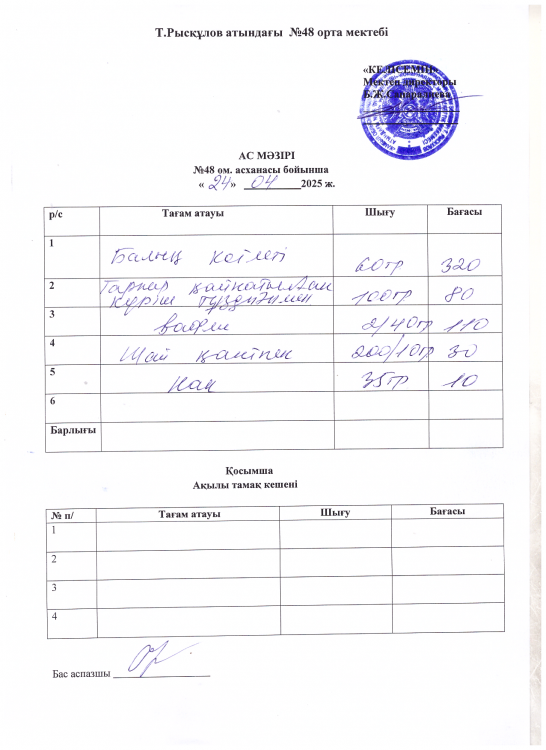 Т.Рысқұлов атындағы №48 орта мектебі
«КЕЛІСЕМІН»
Мектеп директоры
АС МӘЗІРІ
№48 ом. асханасы бойынша
« 24 » 04 2025 ж.
р/с Тағам атауы Шығу Бағасы
1 Балық котлеті 60гр 320
2 Гарнир қайнатылған
күріш тұздығымен 100гр 80
3 вафли 2/40гр 110
4 Шай қантпен 200/10гр 30
5 Нан 35гр 10
6
Барлығы
Қосымша
Ақылы тамақ кешені
№ п/ Тағам атауы Шығу Бағасы
1
2
3
4
Бас аспазшы